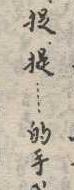 捉捉……的手